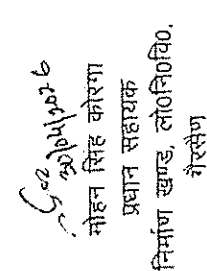 30/04/2026
मोहन सिंह कोरंगा
प्रधान सहायक
निर्माण खण्ड, लो०नि०वि०,
गैरसैण